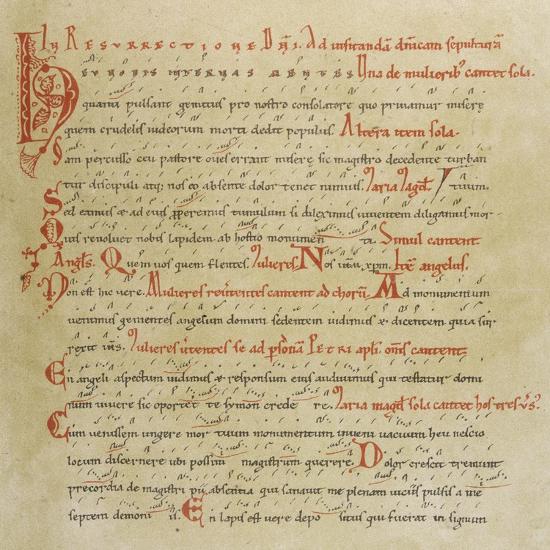 In Resurrectione Dñi. Ad visitandã dñicam sepulturã
Heu nobis internas mentes Una de mulierib; cantet sola.
quanti pulsant gemitus pro nostro consolatore quo privamur misere
quem crudelis iudeorum morti dedit populus. Altera item sola.
Iam percusso ceu pastore oves errant misere sic magistro decedente turban
tur discipuli atq; nos eo absente dolor tenet nimius. Maria Magd. tuum.
Sed eamus & ad eius properemus tumulum si dileximus viventem diligamus mor
Quis revolvet nobis lapidem ab hostio monumen ti. Simul cantent
Angls. Quem vos quem flentes. Mulieres Nos ihm xpm. angelus.
Non est hic vere. Mulieres revertentes cantent ad chorum. Ad monumentum
venimus gementes angelum domini sedentem vidimus & dicentem quia sur
rexit Mulieres vertentes se ad Petri apli omēs cantent.
En angeli aspectum vidimus & responsum eius audivimus qui testatur domi
num vivere sic oportet te symon crede re. Maria magd sola cantet hos tres
Cum venissem ungere mor tuum monumentum inveni vacuum heu nescio
locum discernere ubi possim magistrum querere. Dolor crescit tremunt
precordia de magistri pii absentia qui sanavit me plenam viciis pulsis a me
septem demoni is. En lapis est vere depo situs qui fuerat in signum